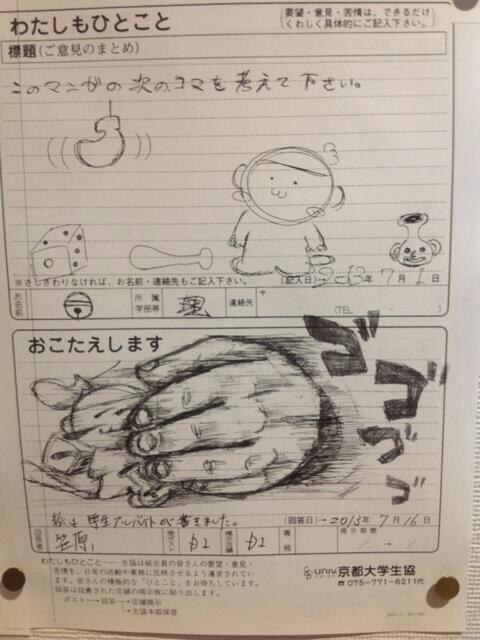 わたしもひとこと
(要望・意見・苦情は、できるだけくわしく具体的にご記入下さい。)
標題(ご意見のまとめ)
このマンガの次のコマを考えて下さい。
※さしさわりなければ、お名前・連絡先もご記入下さい。
(記入日) 2013年 7月 1日
お名前
所属学部等
理
連絡先
〒
(TEL )
おこたえします
ゴゴゴゴ
絵は学生アルバイトが書きました。
(回答日)→2013年 7月 16日
回答者
笠原
専務
掲示期間
わたしもひとこと──生協は組合員の皆さんの要望・意見・
苦情を、日常の活動や業務に反映させるよう運営されてい
ます。皆さんの積極的な「ひとこと」をお待ちしています。
回答は投書された店舗の掲示板に貼り出します。
ポスト→回答→店舗掲示
→生協本部保管
univ.
京都大学生協
☎075-771-6211㈹